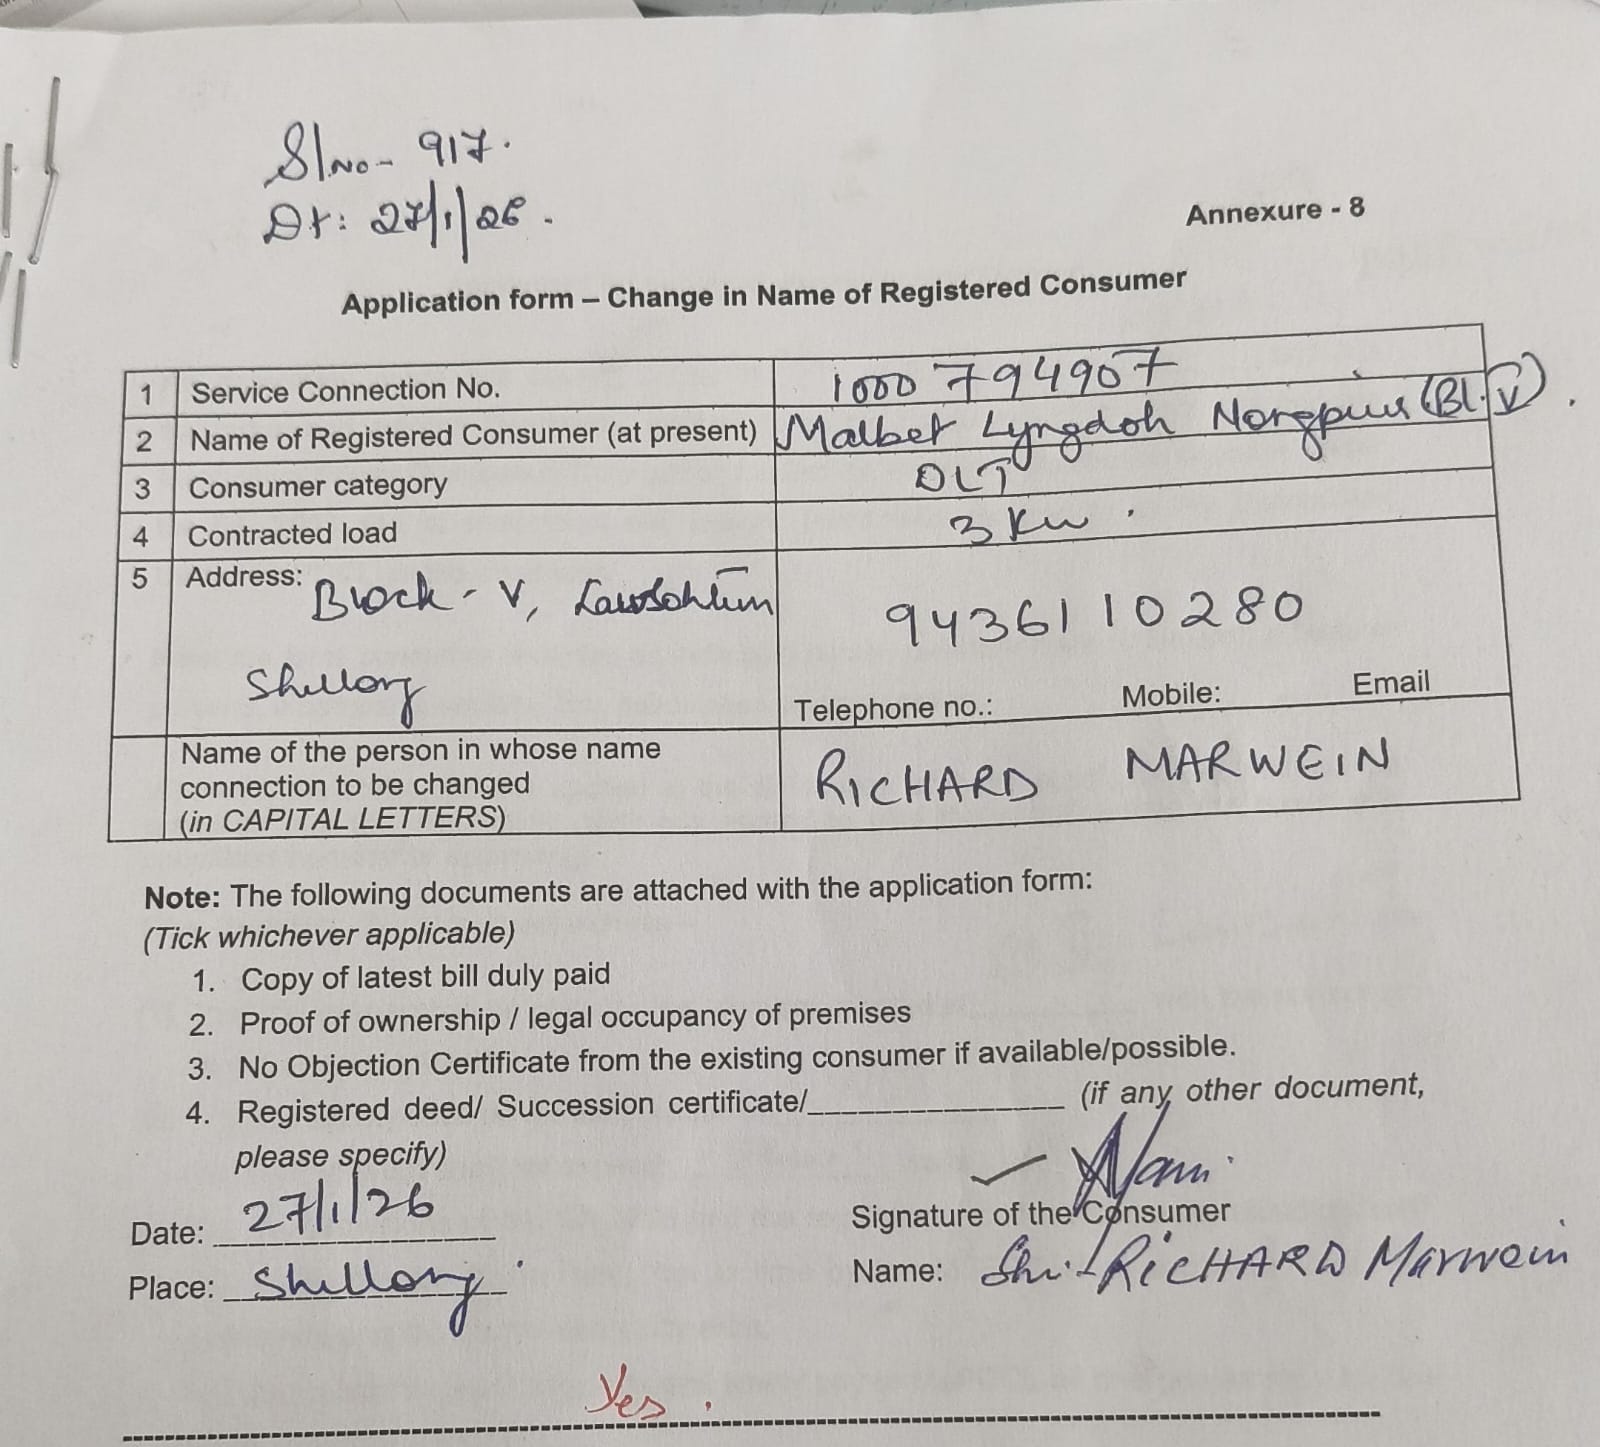 Sl No - 917.
Dt: 27/1/26.
Annexure - 8
Application form – Change in Name of Registered Consumer
1 Service Connection No. 1000794907
2 Name of Registered Consumer (at present) Malbet Lyngdoh Nongpiur (Bl. V).
3 Consumer category DLT
4 Contracted load 3 Kw.
5 Address: Block - V, Lawsohtun
Shillong
9436110280
Telephone no.: Mobile: Email
Name of the person in whose name
connection to be changed
(in CAPITAL LETTERS)
RICHARD MARWEIN
Note: The following documents are attached with the application form:
(Tick whichever applicable)
1. Copy of latest bill duly paid
2. Proof of ownership / legal occupancy of premises
3. No Objection Certificate from the existing consumer if available/possible.
4. Registered deed/ Succession certificate/_______________ (if any other document,
please specify)
Date: 27/1/26
Signature of the Consumer
Place: Shillong
Name: Shri RICHARD Marwein
Yes.